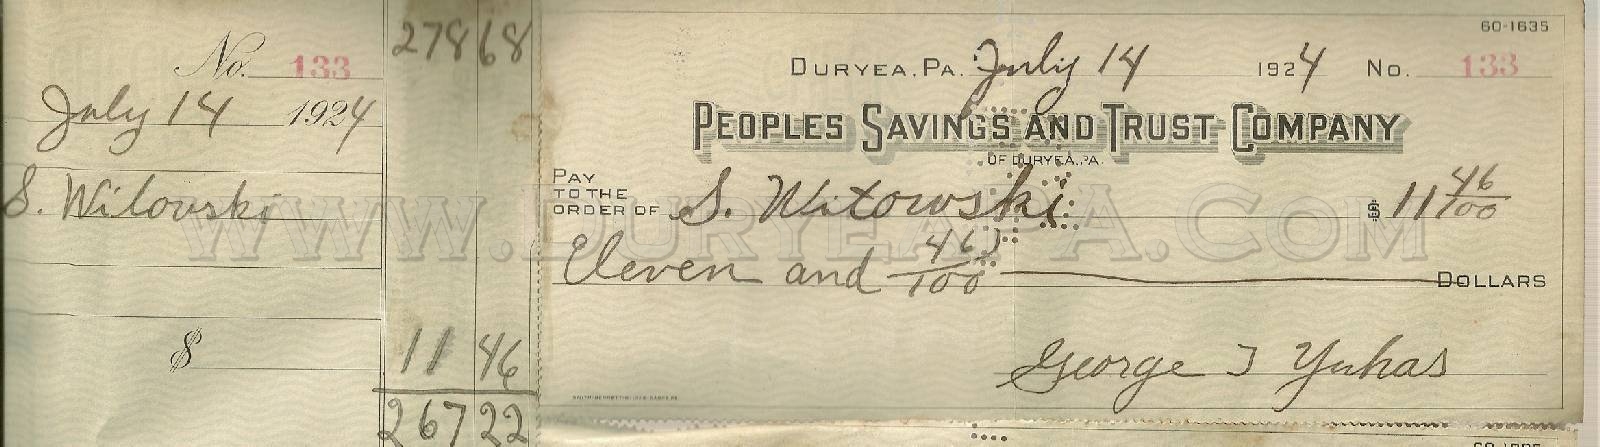 No. 133
July 14 1924
S. Wilowski
$
278 68
11 46
267 22
60-1635
DURYEA, PA. July 14 1924 No. 133
PEOPLES SAVINGS AND TRUST COMPANY
OF DURYEA, PA.
PAY
TO THE
ORDER OF S. Witowski $ 11 46/100
Eleven and 46/100 DOLLARS
George J Yuhas
WWW.DURYEAPA.COM